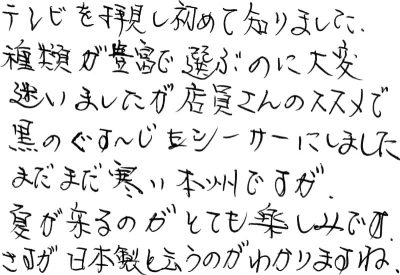 テレビを拝見し初めて知りました、
種類が豊富で選ぶのに大変
迷いましたが店員さんのススメで
黒のぐすーじ㐂シーサーにしました
まだまだ寒い本州ですが、
夏が来るのがとても楽しみです。
さすが日本製と云うのがわかりますね。